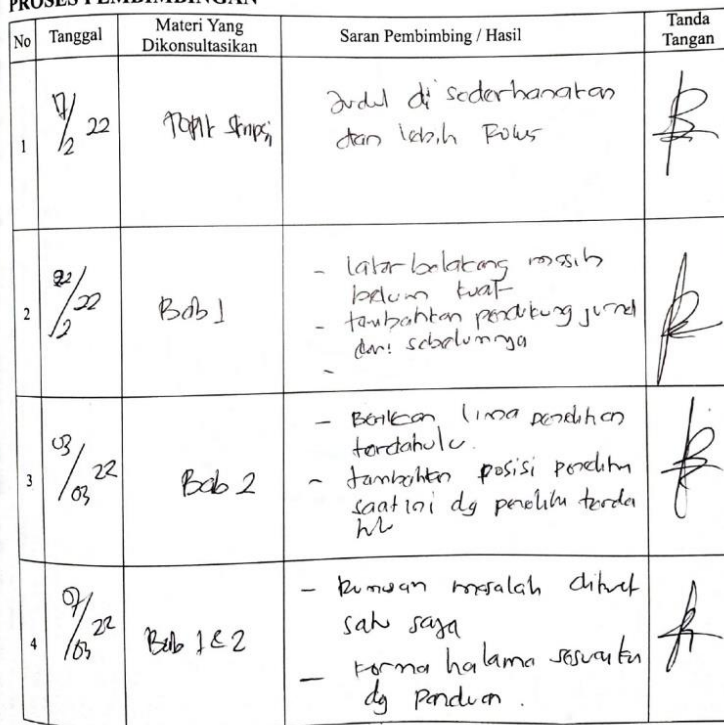 PROSES PEMBIMBINGAN
No Tanggal Materi Yang Dikonsultasikan Saran Pembimbing / Hasil Tanda Tangan
1 17/2 22 Topik Skripsi Judul di sederhanakan
dan lebih Fokus
2 22/2 22 Bab 1 - latar belakang masih
belum kuat
- tambahkan pendukung jurnal
dari sebelumnya
-
3 03/03 22 Bab 2 - Berikan lima penelitian
terdahulu.
- tambahkan posisi peneliti
saat ini dg peneliti terda
hulu
4 07/03 22 Bab 1 & 2 - Rumusan masalah dibuat
satu saja
- Format halama sesuaikan
dg Panduan.